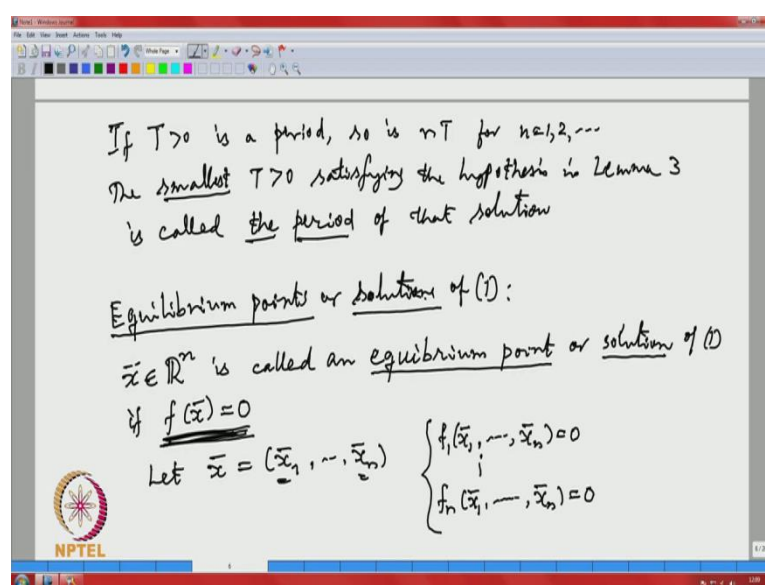 Note1 - Windows Journal
File Edit View Insert Actions Tools Help
If T>0 is a period, so is nT for n=1,2,...
The smallest T>0 satisfying the hypothesis in Lemma 3
is called the period of that solution
Equilibrium points or solutions of (1):
x̄ ∈ ℝⁿ is called an equibrium point or solution of (1)
if f(x̄)=0
Let x̄ = (x̄₁, ..., x̄ₙ)
f₁(x̄₁, ..., x̄ₙ)=0
⋮
fₙ(x̄₁, ..., x̄ₙ)=0
NPTEL